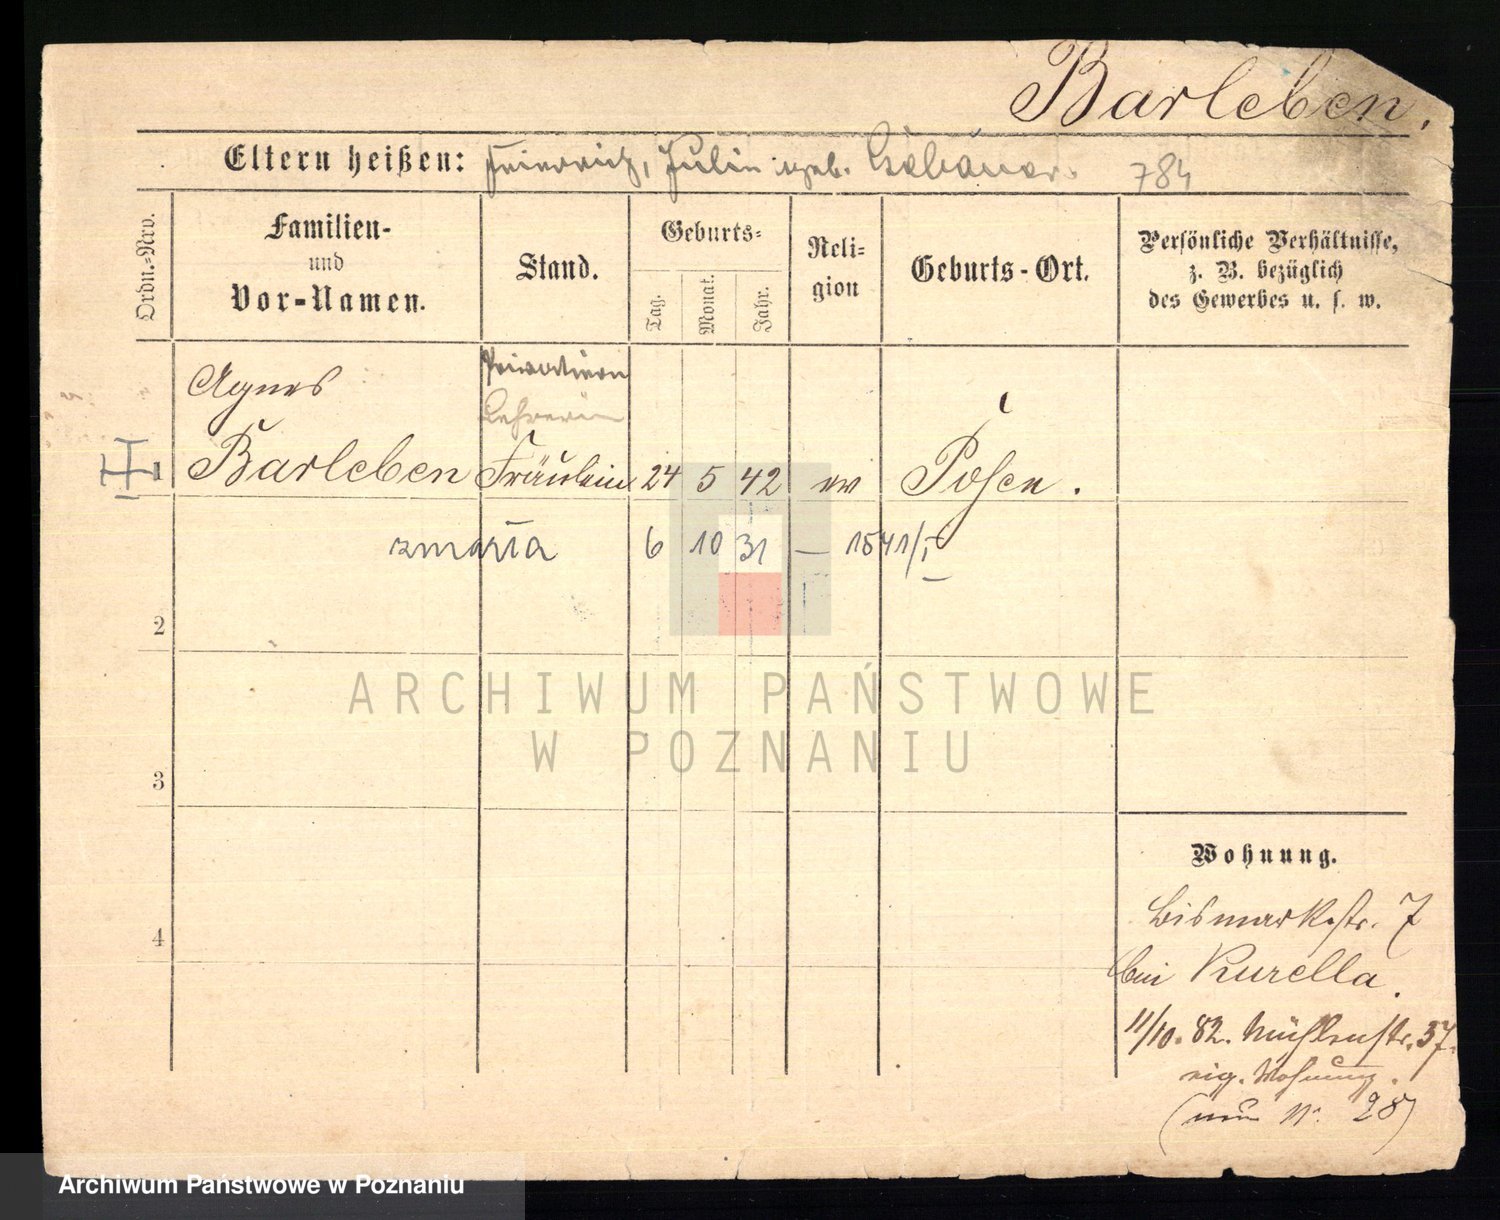 Barleben.
Eltern heißen: Heinrich, Julie geb. 784
Ordn.-Nro.
Familien-
und
Vor-Namen.
Stand.
Geburts-
Tag.
Monat.
Jahr.
Reli-
gion
Geburts-Ort.
Persönliche Verhältnisse,
z. B. bezüglich
des Gewerbes u. s. w.
Privatiere
Agnes
Lehrerin
1 Barleben Fräulein 24 5 42 ev Posen.
zmarła 6 10 31 — 1541/I
2
3
4
Wohnung.
Bismarckstr. 7
bei Kurella.
11/10. 82. Mühlenstr. 37.
eig. Wohnung.
(nun N. 28)
ARCHIWUM PAŃSTWOWE
W POZNANIU
Archiwum Państwowe w Poznaniu